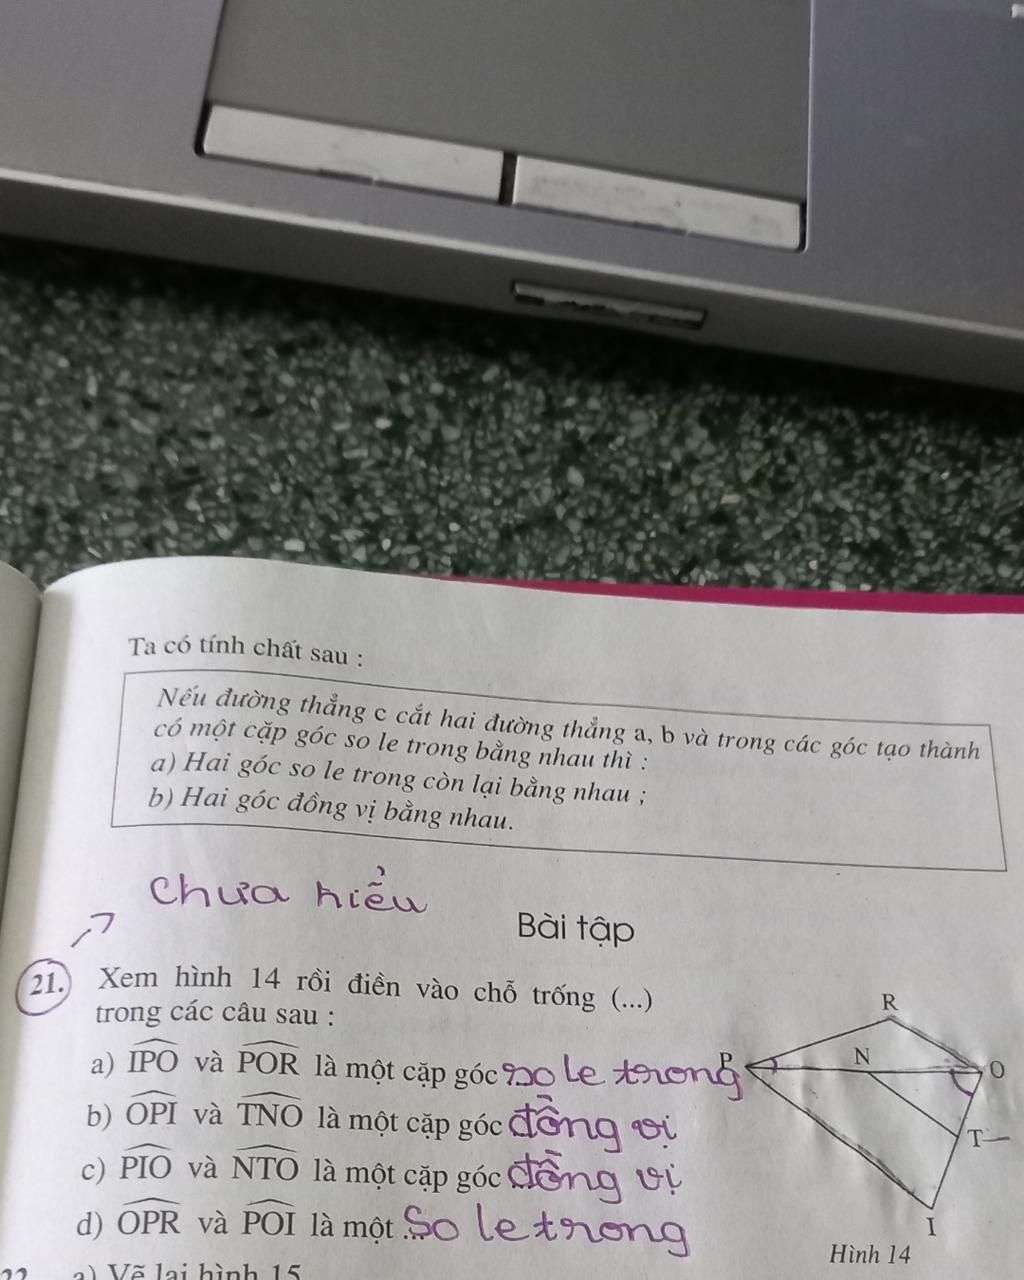 Ta có tính chất sau :
Nếu đường thẳng c cắt hai đường thẳng a, b và trong các góc tạo thành
có một cặp góc so le trong bằng nhau thì :
a) Hai góc so le trong còn lại bằng nhau ;
b) Hai góc đồng vị bằng nhau.
chưa hiểu
Bài tập
21. Xem hình 14 rồi điền vào chỗ trống (...)
trong các câu sau :
a) IPO và POR là một cặp góc so le trong
b) OPI và TNO là một cặp góc đồng vị
c) PIO và NTO là một cặp góc đồng vị
d) OPR và POI là một ... So le trong
R
P
N
O
T
I
Hình 14
22. a) Vẽ lại hình 15